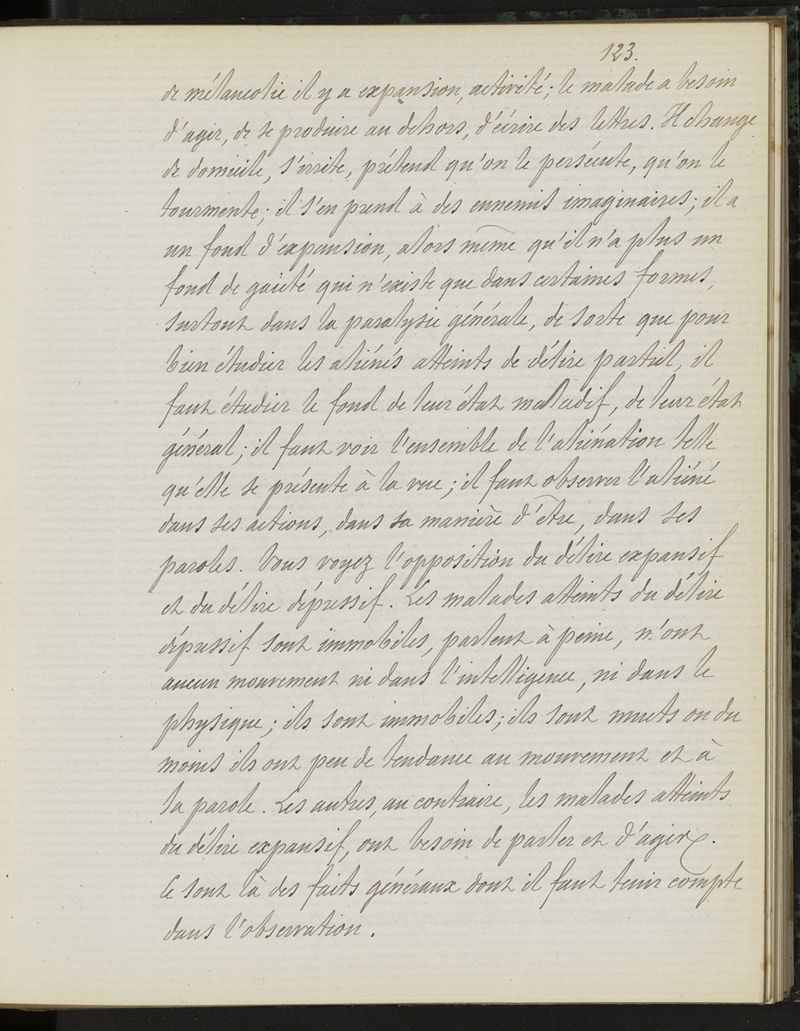 123.
de mélancolie il y a expansion, activité; le malade a besoin
d'agir, de se produire au dehors, d'écrire des lettres. Il change
de domicile, s'irrite, prétend qu'on le persécute, qu'on le
tourmente; il s'en prend à des ennemis imaginaires; il a
un fond d'expansion, alors même qu'il n'a plus un
fond de gaieté qui n'existe que dans certaines formes,
surtout dans la paralysie générale, de sorte que pour
bien étudier les aliénés atteints de délire partiel, il
faut étudier le fond de leur état maladif, de leur état
général; il faut voir l'ensemble de l'aliénation telle
qu'elle se présente à la vue; il faut observer l'aliéné
dans ses actions, dans sa manière d'être, dans ses
paroles. Vous voyez l'opposition du délire expansif
et du délire dépressif. Les malades atteints du délire
dépressif sont immobiles, parlent à peine, n'ont
aucun mouvement ni dans l'intelligence, ni dans le
physique; ils sont immobiles; ils sont muets ou du
moins ils ont peu de tendance au mouvement et à
la parole. Les autres, au contraire, les malades atteints
du délire expansif, ont besoin de parler et d'agir.
Ce sont là des faits généraux dont il faut tenir compte
dans l'observation.